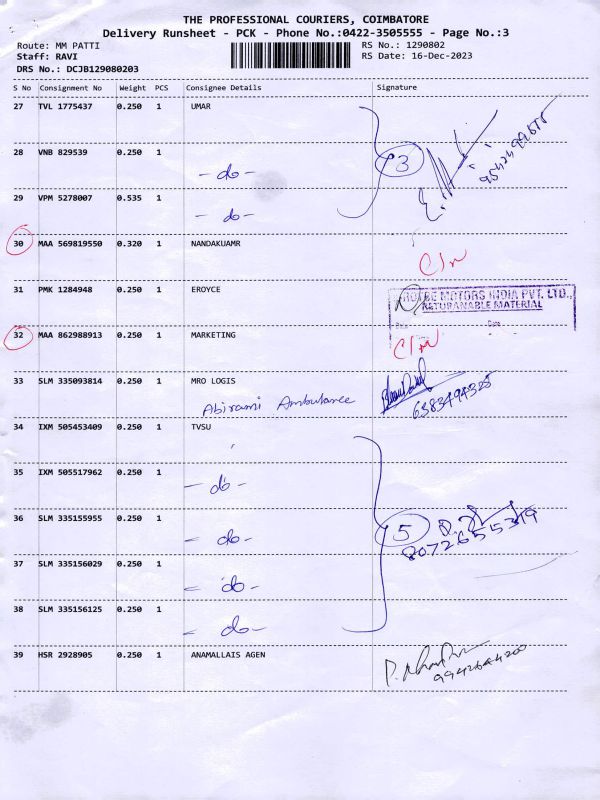 THE PROFESSIONAL COURIERS, COIMBATORE
Delivery Runsheet - PCK - Phone No.:0422-3505555 - Page No.:3
Route: MM PATTI RS No.: 1290802
Staff: RAVI RS Date: 16-Dec-2023
DRS No.: DCJB129080203
S No Consignment No Weight PCS Consignee Details Signature
27 TVL 1775437 0.250 1 UMAR
3
28 VNB 829539 0.250 1
- do -
29 VPM 5278007 0.535 1
- do -
30 MAA 569819550 0.320 1 NANDAKUAMR
31 PMK 1284948 0.250 1 EROYCE
MOTORS INDIA PVT. LTD.,
RETURANABLE MATERIAL
Date
32 MAA 862988913 0.250 1 MARKETING
33 SLM 335093814 0.250 1 MRO LOGIS
Abirami Ambulance 6383494325
34 IXM 505453409 0.250 1 TVSU
35 IXM 505517962 0.250 1
- do -
36 SLM 335155955 0.250 1
5
- do - 8072655319
37 SLM 335156029 0.250 1
- do -
38 SLM 335156125 0.250 1
- do -
39 HSR 2928905 0.250 1 ANAMALLAIS AGEN